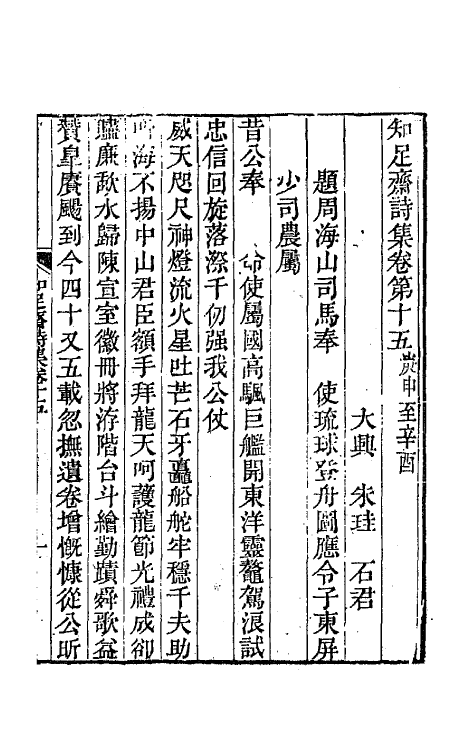 知足齋詩集卷第十五庚申至辛酉
大興 朱珪 石君
題周海山司馬奉 使琉球登舟圖應令子東屏
少司農屬
昔公奉 命使屬國高颿巨艦開東洋靈鼇駕浪試
忠信回旋落漈千仞强我公仗
威天咫尺神燈流火星吐芒石牙齾船舵牢穩千夫助
海不揚中山君臣額手拜龍天呵護龍節光禮成卻
贐廉歃水歸陳宣室徽冊將洊階台斗繪勤蹟舜歌益
贊皐賡颺到今四十又五載忽撫遺卷增慨慷從公昕
知足齋詩集卷十五 一